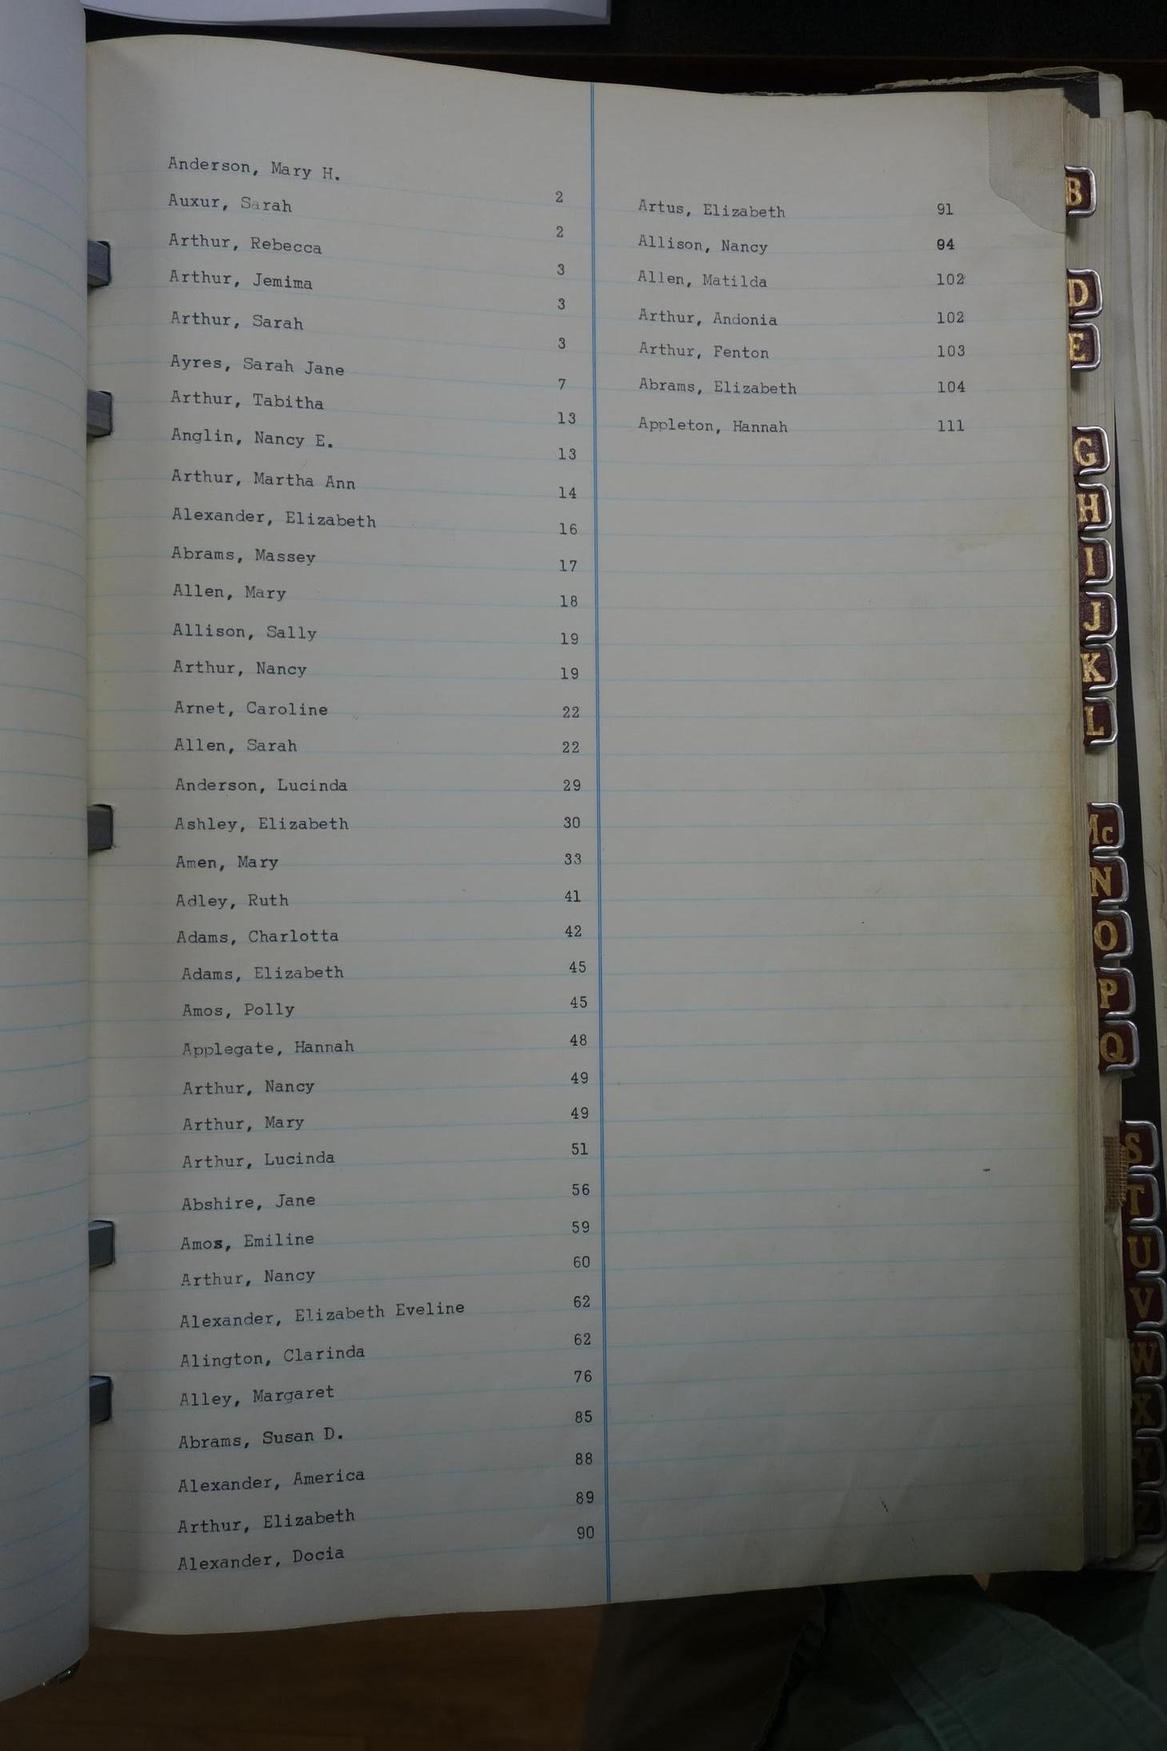 Anderson, Mary H. 2
Auxur, Sarah 2
Arthur, Rebecca 3
Arthur, Jemima 3
Arthur, Sarah 3
Ayres, Sarah Jane 7
Arthur, Tabitha 13
Anglin, Nancy E. 13
Arthur, Martha Ann 14
Alexander, Elizabeth 16
Abrams, Massey 17
Allen, Mary 18
Allison, Sally 19
Arthur, Nancy 19
Arnet, Caroline 22
Allen, Sarah 22
Anderson, Lucinda 29
Ashley, Elizabeth 30
Amen, Mary 33
Adley, Ruth 41
Adams, Charlotta 42
Adams, Elizabeth 45
Amos, Polly 45
Applegate, Hannah 48
Arthur, Nancy 49
Arthur, Mary 49
Arthur, Lucinda 51
Abshire, Jane 56
Amos, Emiline 59
Arthur, Nancy 60
Alexander, Elizabeth Eveline 62
Alington, Clarinda 62
Alley, Margaret 76
Abrams, Susan D. 85
Alexander, America 88
Arthur, Elizabeth 89
Alexander, Docia 90
Artus, Elizabeth 91
Allison, Nancy 94
Allen, Matilda 102
Arthur, Andonia 102
Arthur, Fenton 103
Abrams, Elizabeth 104
Appleton, Hannah 111
B
D
E
G
H
I
J
K
L
Mc
N
O
P
Q
S
T
U
V
W
X
Y
Z